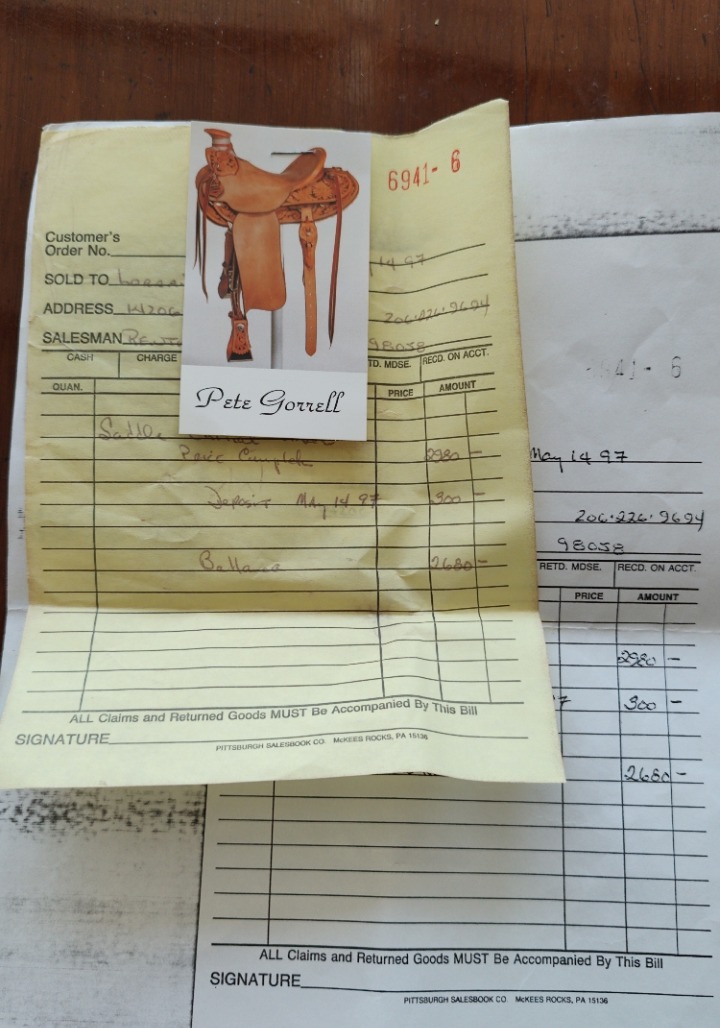 6941-6
Customer's
Order No.
14 97
SOLD TO
ADDRESS 206.226.9694
SALESMAN 98058
CASH CHARGE TD. MDSE. RECD. ON ACCT.
QUAN. PRICE AMOUNT
Saddle
Price Complete 2980 -
Deposit May 14 97 300 -
Ballance 2680 -
ALL Claims and Returned Goods MUST Be Accompanied By This Bill
SIGNATURE
PITTSBURGH SALESBOOK CO. McKEES ROCKS, PA 15136
Pete Gorrell
41-6
May 14 97
206.226.9694
98058
RETD. MDSE. RECD. ON ACCT.
PRICE AMOUNT
2980 -
7 300 -
2680 -
ALL Claims and Returned Goods MUST Be Accompanied By This Bill
SIGNATURE
PITTSBURGH SALESBOOK CO. McKEES ROCKS, PA 15136